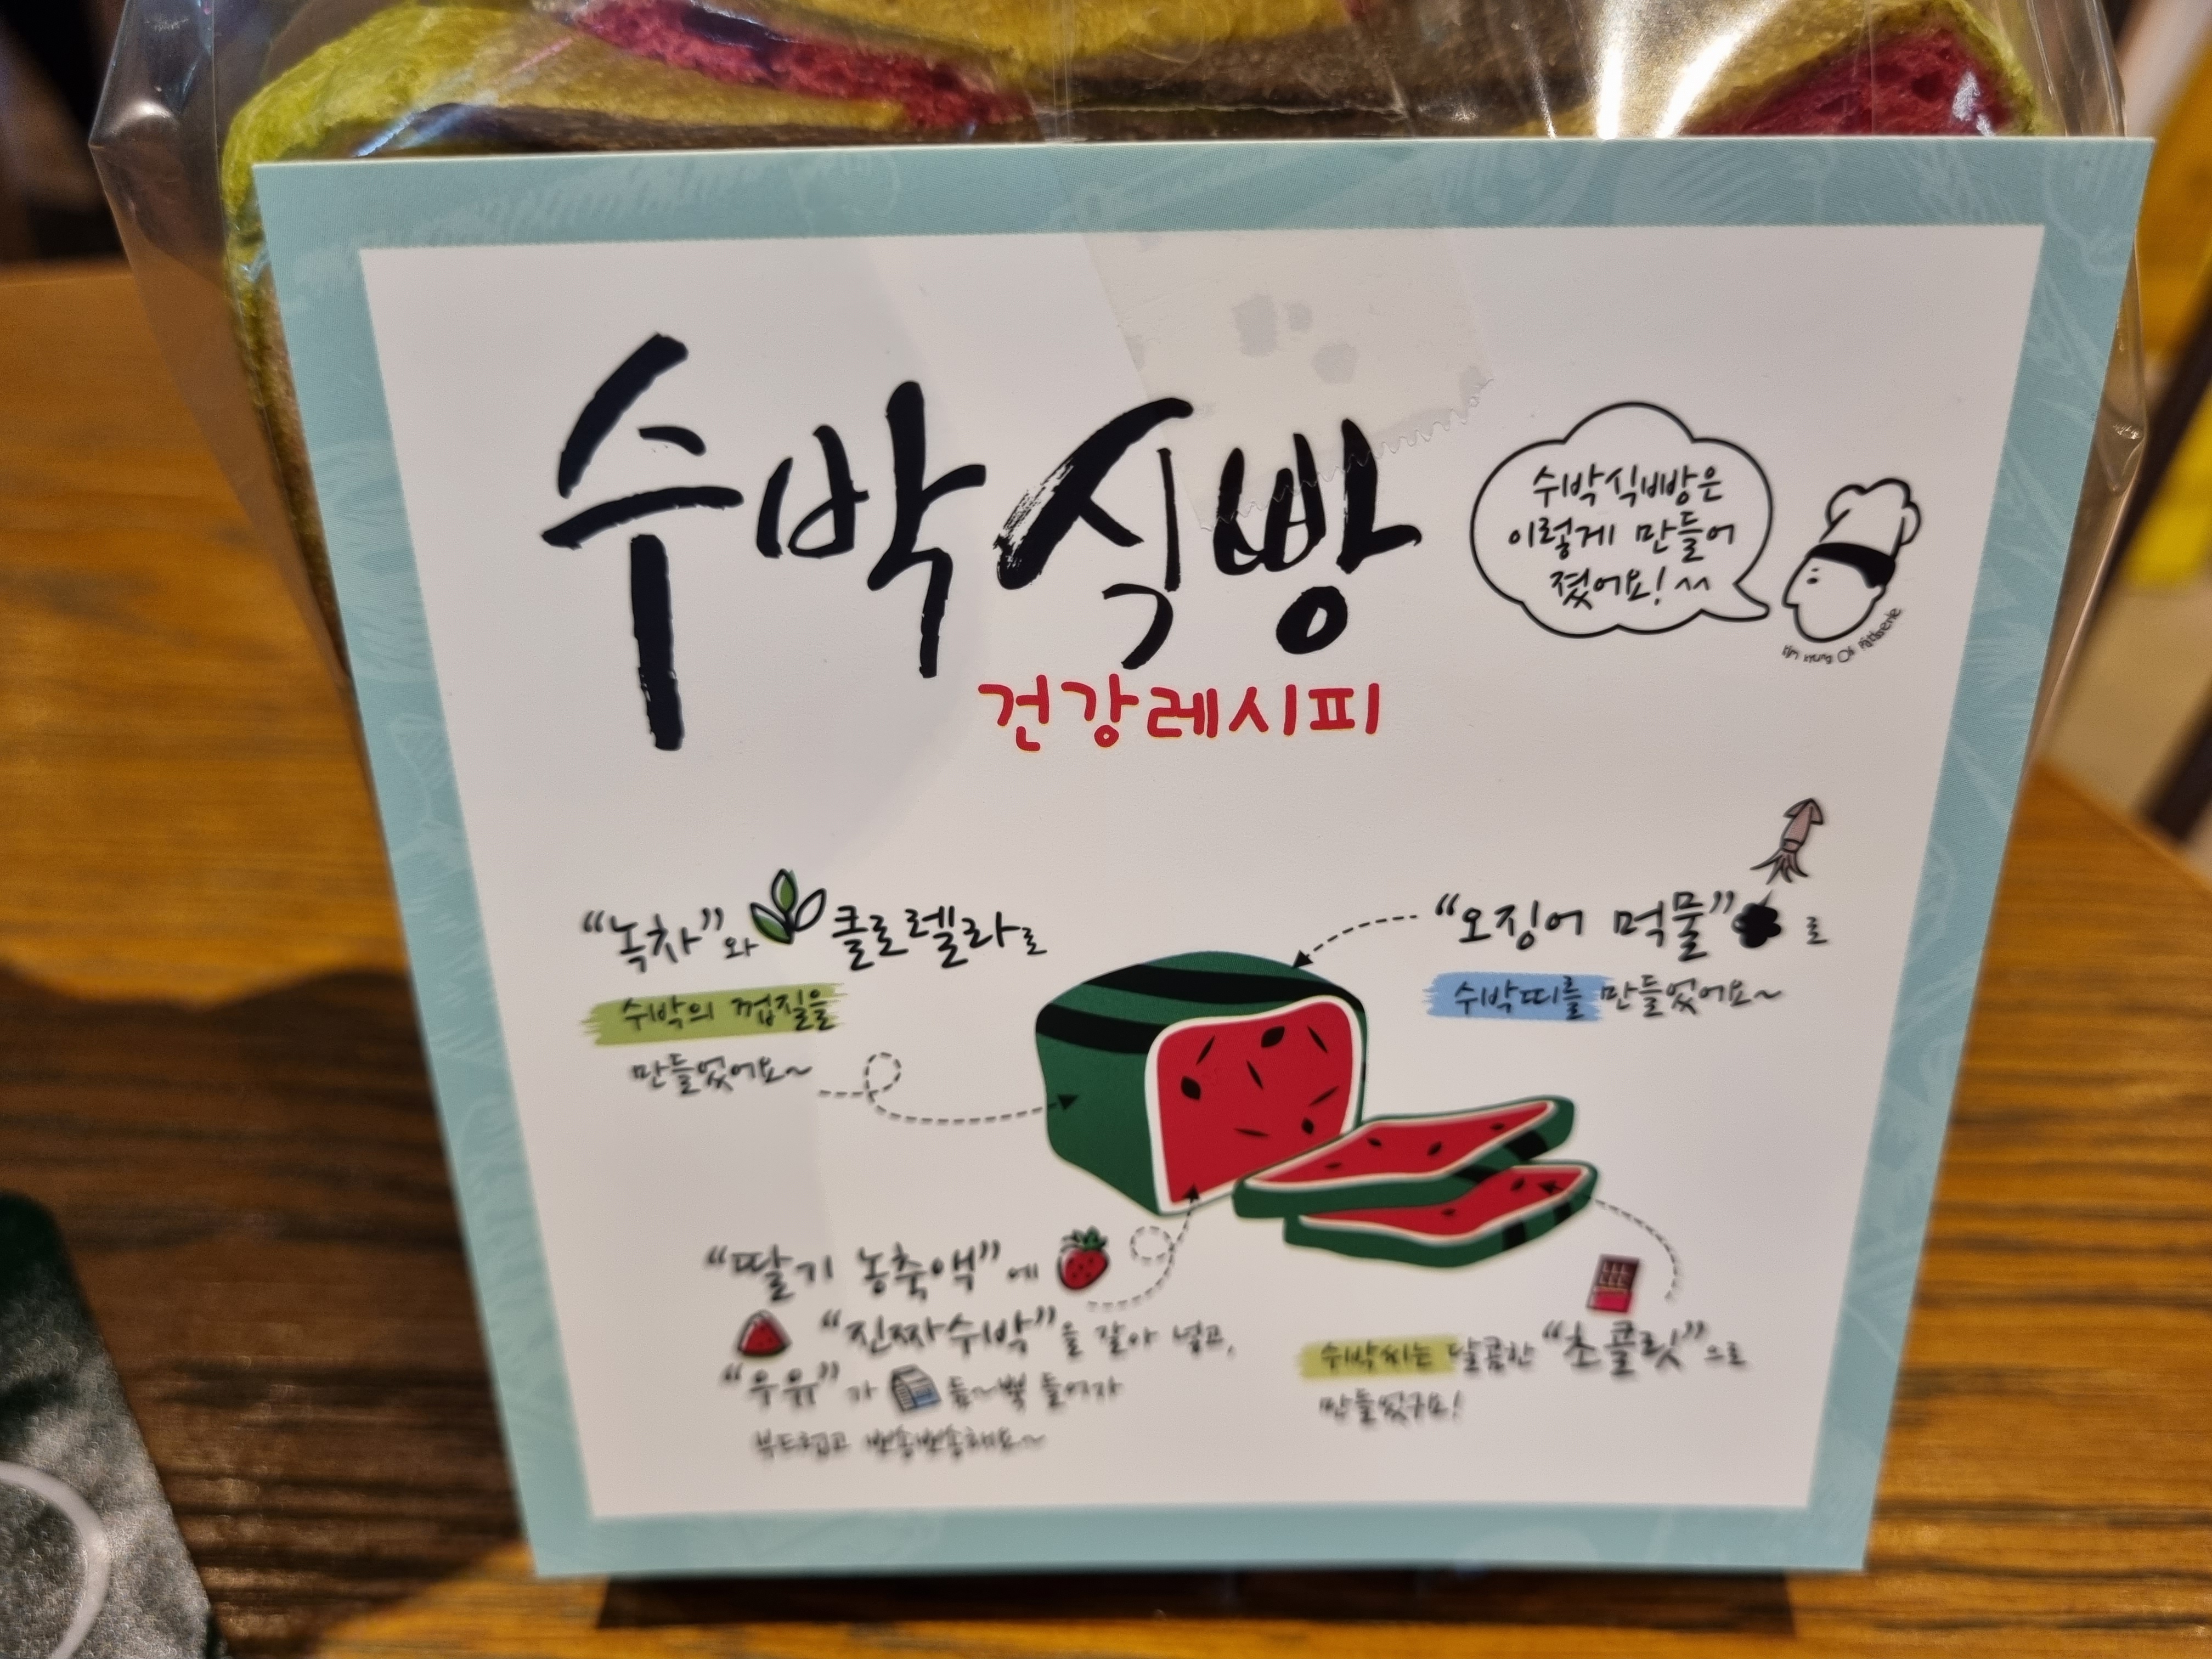 수박식빵
건강레시피
수박식빵은
이렇게 만들어
졌어요! ^^
"녹차"와 클로렐라로
수박의 껍질을
만들었어요~
"오징어 먹물"로
수박띠를 만들었어요~
"딸기 농축액"에
"진짜수박"을 갈아 넣고,
"우유"가 듬~뿍 들어가
부드럽고 뽀송뽀송해요~
수박씨는 달콤한 "초콜릿"으로
만들었구요!